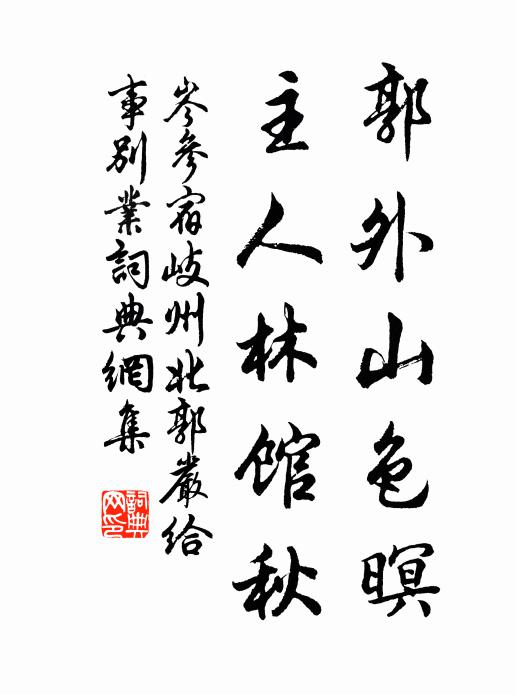 郭外山色暝
主人林館秋
岑參宿岐州北郭嚴給
事別業詞典網集
詞典
网印